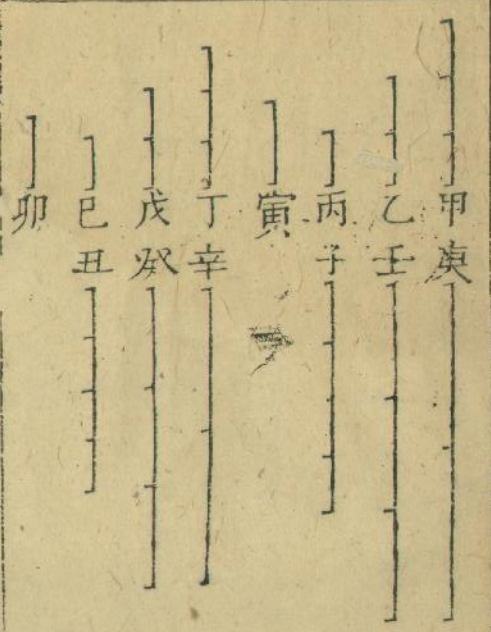 甲庚
乙壬
丙子
寅
丁辛
戊癸
巳丑
卯